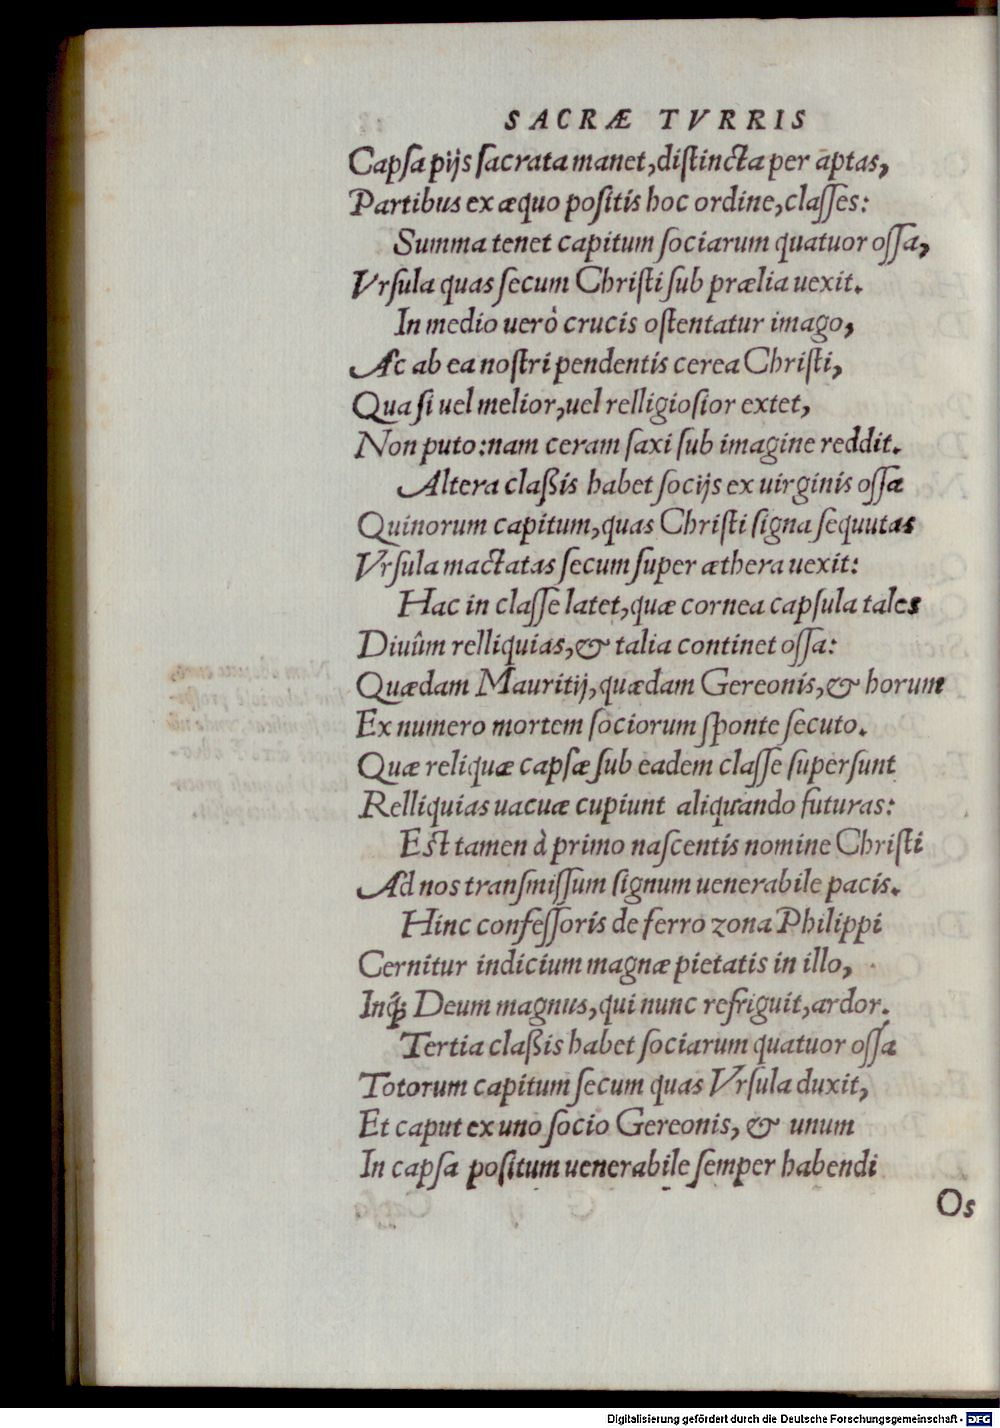 SACRÆ TVRRIS
Capſa pijs ſacrata manet, diſtincta per aptas,
Partibus ex æquo poſitis hoc ordine, claſſes:
Summa tenet capitum ſociarum quatuor oſſa,
Vrſula quas ſecum Chriſti ſub prælia uexit.
In medio uerò crucis oſtentatur imago,
Ac ab ea noſtri pendentis cerea Chriſti,
Qua ſi uel melior, uel relligioſior extet,
Non puto: nam ceram ſaxi ſub imagine reddit.
Altera claßis habet ſocijs ex uirginis oſſa
Quinorum capitum, quas Chriſti ſigna ſequutas
Vrſula mactatas ſecum ſuper æthera uexit:
Hac in claſſe latet, quæ cornea capſula tales
Diuûm relliquias, & talia continet oſſa:
Quædam Mauritij, quædam Gereonis, & horum
Ex numero mortem ſociorum ſponte ſecuto.
Quæ reliquæ capſæ ſub eadem claſſe ſuperſunt
Relliquias uacuæ cupiunt aliquando futuras:
Eſt tamen à primo naſcentis nomine Chriſti
Ad nos tranſmiſſum ſignum uenerabile pacis.
Hinc confeſſoris de ferro zona Philippi
Cernitur indicium magnæ pietatis in illo,
Inq́; Deum magnus, qui nunc refriguit, ardor.
Tertia claßis habet ſociarum quatuor oſſa
Totorum capitum ſecum quas Vrſula duxit,
Et caput ex uno ſocio Gereonis, & unum
In capſa poſitum uenerabile ſemper habendi
Os
Digitalisierung gefördert durch die Deutsche Forschungsgemeinschaft - DFG